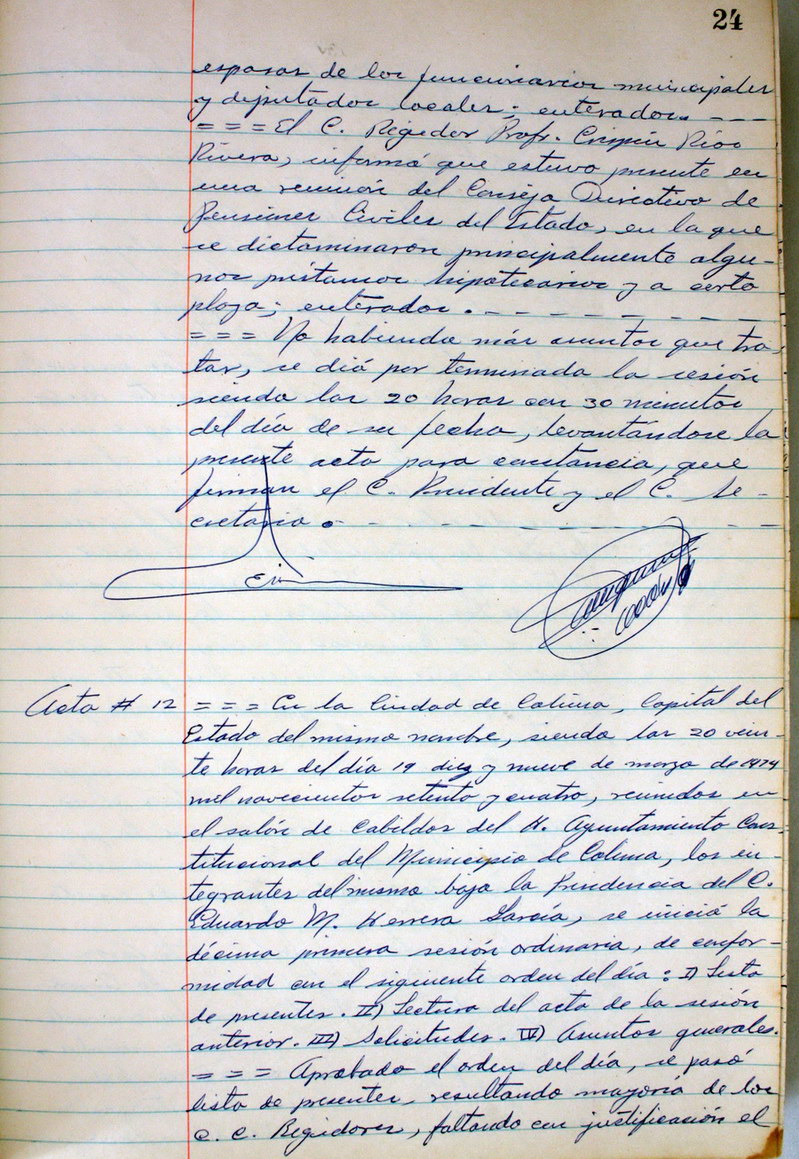 24
esposas de los funcionarios municipales
y diputados locales; enterados. - - -
= = = El C. Regidor Profr. Crispín Ríos
Rivera, informó que estuvo presente en
una reunión del Consejo Directivo de
Pensiones Civiles del Estado, en la que
se dictaminaron principalmente algu-
nos préstamos hipotecarios y a corto
plazo; enterados. - - - - - - - - -
= = = No habiendo más asuntos que tra-
tar, se dió por terminada la sesión
siendo las 20 horas con 30 minutos
del día de su fecha, levantándose la
presente acta para constancia, que
firman el C. Presidente y el C. Se-
cretario. - - - - - - - - - - -
Acta # 12 = = = En la Ciudad de Colima, Capital del
Estado del mismo nombre, siendo las 20 vein-
te horas del día 19 diez y nueve de marzo de 1974
mil novecientos setenta y cuatro, reunidos en
el salón de Cabildos del H. Ayuntamiento Cons-
titucional del Municipio de Colima, los in-
tegrantes del mismo bajo la Presidencia del C.
Eduardo M. Herrera García, se inició la
décima primera sesión ordinaria, de confor-
midad con el siguiente orden del día: I) Lista
de presentes. II) Lectura del acta de la sesión
anterior. III) Solicitudes. IV) Asuntos generales.
= = = Aprobado el orden del día, se pasó
lista de presentes, resultando mayoría de los
C. C. Regidores, faltando con justificación el